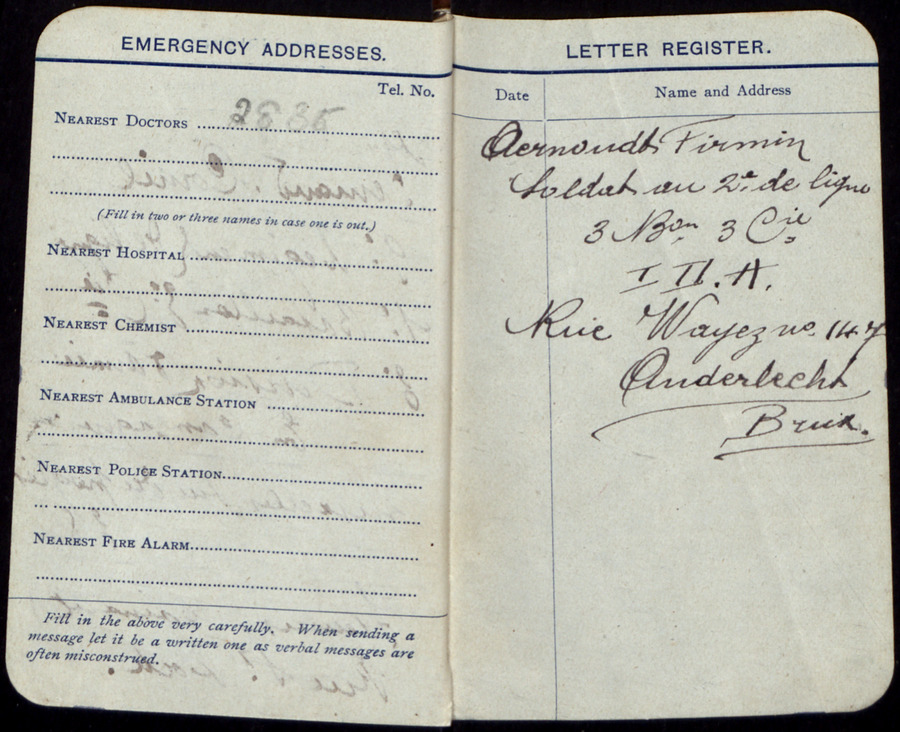 EMERGENCY ADDRESSES.
Tel. No.
NEAREST DOCTORS 2835
(Fill in two or three names in case one is out.)
NEAREST HOSPITAL
NEAREST CHEMIST
NEAREST AMBULANCE STATION
NEAREST POLICE STATION
NEAREST FIRE ALARM
Fill in the above very carefully. When sending a
message let it be a written one as verbal messages are
often misconstrued.
LETTER REGISTER.
Date Name and Address
Aernoudt Firmin
Soldat au 2e de ligne
3 Bon 3 Cie
I II. A.
Rue Wayez no. 147
Anderlecht
Brux.